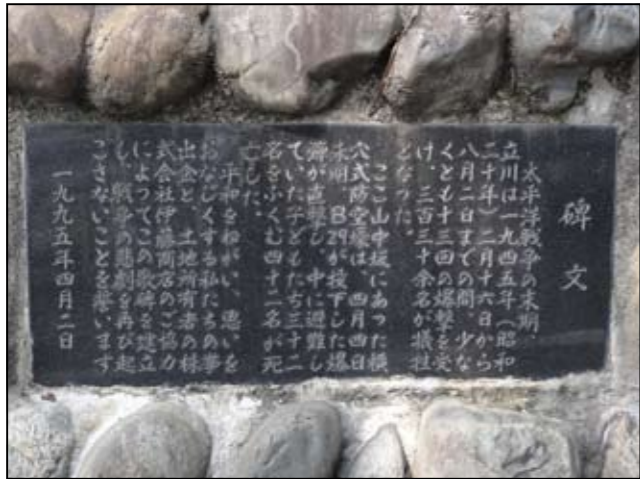 碑文
太平洋戦争の末期、
立川は一九四五年(昭和
二十年)二月十六日から
八月二日までの間、少な
くとも十三回の爆撃を受
け、三百三十余名が犠牲
となった。
ここ山中坂にあった横
穴式防空壕は、四月四日
未明、B29が投下した爆
弾が直撃し、中に避難し
ていた子どもたち三十二
名をふくむ四十二名が死
亡した。
平和をねがい、思いを
おなじくする私たちの拳
出金と、土地所有者の株
式会社伊藤商店のご協力
によってこの歌碑を建立
し、戦争の悲劇を再び起
こさないことを誓います
一九九五年四月二日